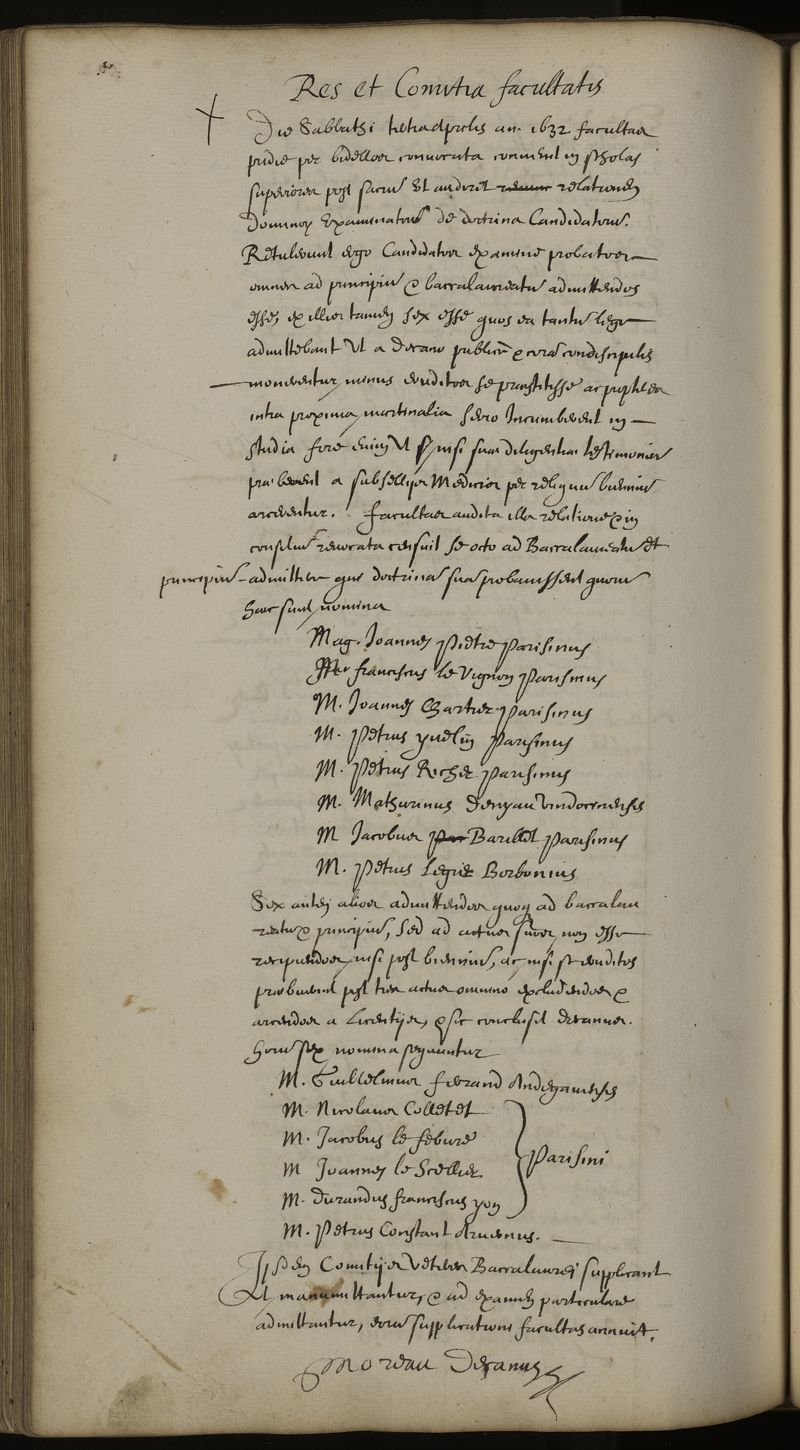 Res et Comitia facultatis
Die Sabbathi tertia Aprilis an. 1632 facultas
pridie per bidellos convocata convenit in scholas
superiores post sacrū et audivit relationem
Dominor Examinatorū de doctrina Candidatorū.
Retulerunt ergo Candidatos examine probatos
omnes ad principiū & baccalaureatū admittendos
esse, ex illis tamen sex esse quos ea tantū lege
admittebant ut a decano publicè & corā condiscipulis
monerentur, minus eruditos se praestitisse ac
intra proxima martinalia serio incumberent in
studia fore enim ut nisi suae diligentiae testimonium
praeberent a subsellijs Medicis per reliquū biennium
arcerentur. facultas audita illa relatione & in
consiliū revocata censuit se octo ad Baccalaureatū et
principiū admittere qui doctrinā suā probavissent quorū
haec sunt nomina
Mag. Joannes Pietre Parisinus
Mr franciscus le Vignon Parisinus
M. Joannes Chartier Parisinus
M. Petrus yvelin Parisinus
M. Petrus Richer Parisinus
M. Mathurinus Denyau vindocinensis
M Jacobus Barillet Parisinus
M. Petrus Legier Borbonius
Sex autem alios admittendos quoq ad baccalau
reatū & principiū, sed ad actus suos non esse
recipiendos, nisi post biennium, ac nisi se eruditos
probaverint post tres actus omnino excludendos &
arcendos a Licentijs, & sic conclusit decanus.
horū sex nomina sequuntur
M. Guillelmus fierand Andegavensis
M. Nicolaus Colletet
M. Jacobus le febure
M Joannes le Scellier
Parisini
M. Durandus franciscus yon
M. Petrus Constant Arvernus.
Ijsdem Comitijs Veteres Baccalaurei supplicant
Ut manumittantur, & ad examen particulare
admittantur, eorū supplicationi facultas annuit.
Moreau Decanus